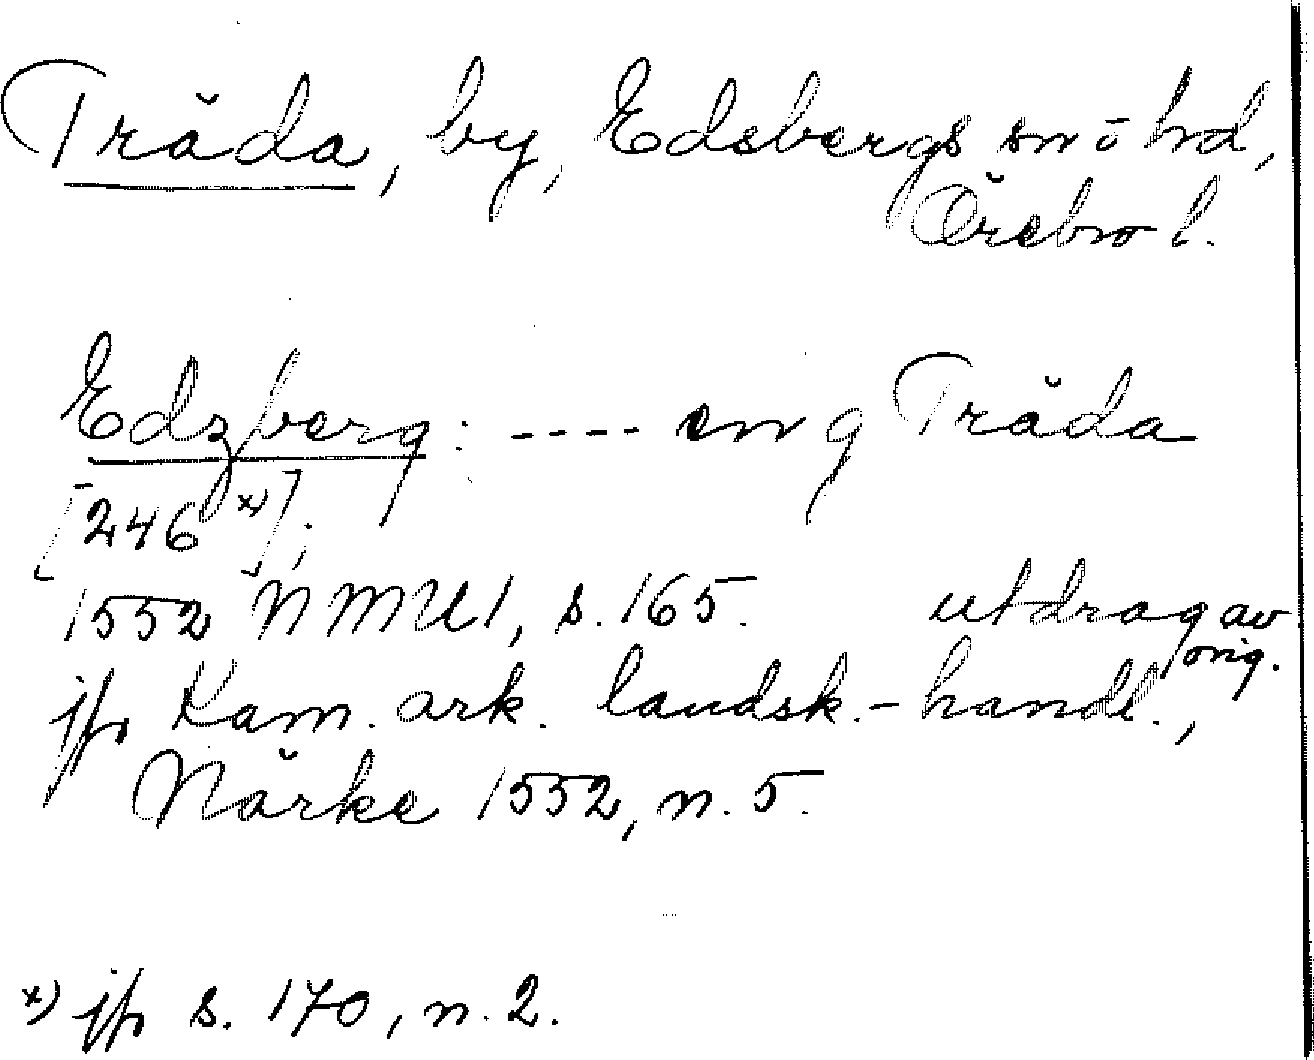 Träda, by, Edsbergs sn o hd,
Örebro l.
Edzberg: ---- en g Träda
[246 x)];
1552 NMU 1, s. 165. utdrag av
orig.
jfr Kam. ark. landsk.-handl.,
Närke 1552, n. 5.
x) jfr s. 170, n. 2.